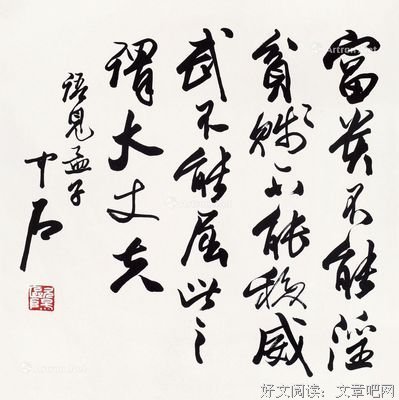 富贵不能淫
貧賤不能移威
武不能屈此之
谓大丈夫
语見孟子
中石
好文阅读：文章吧网